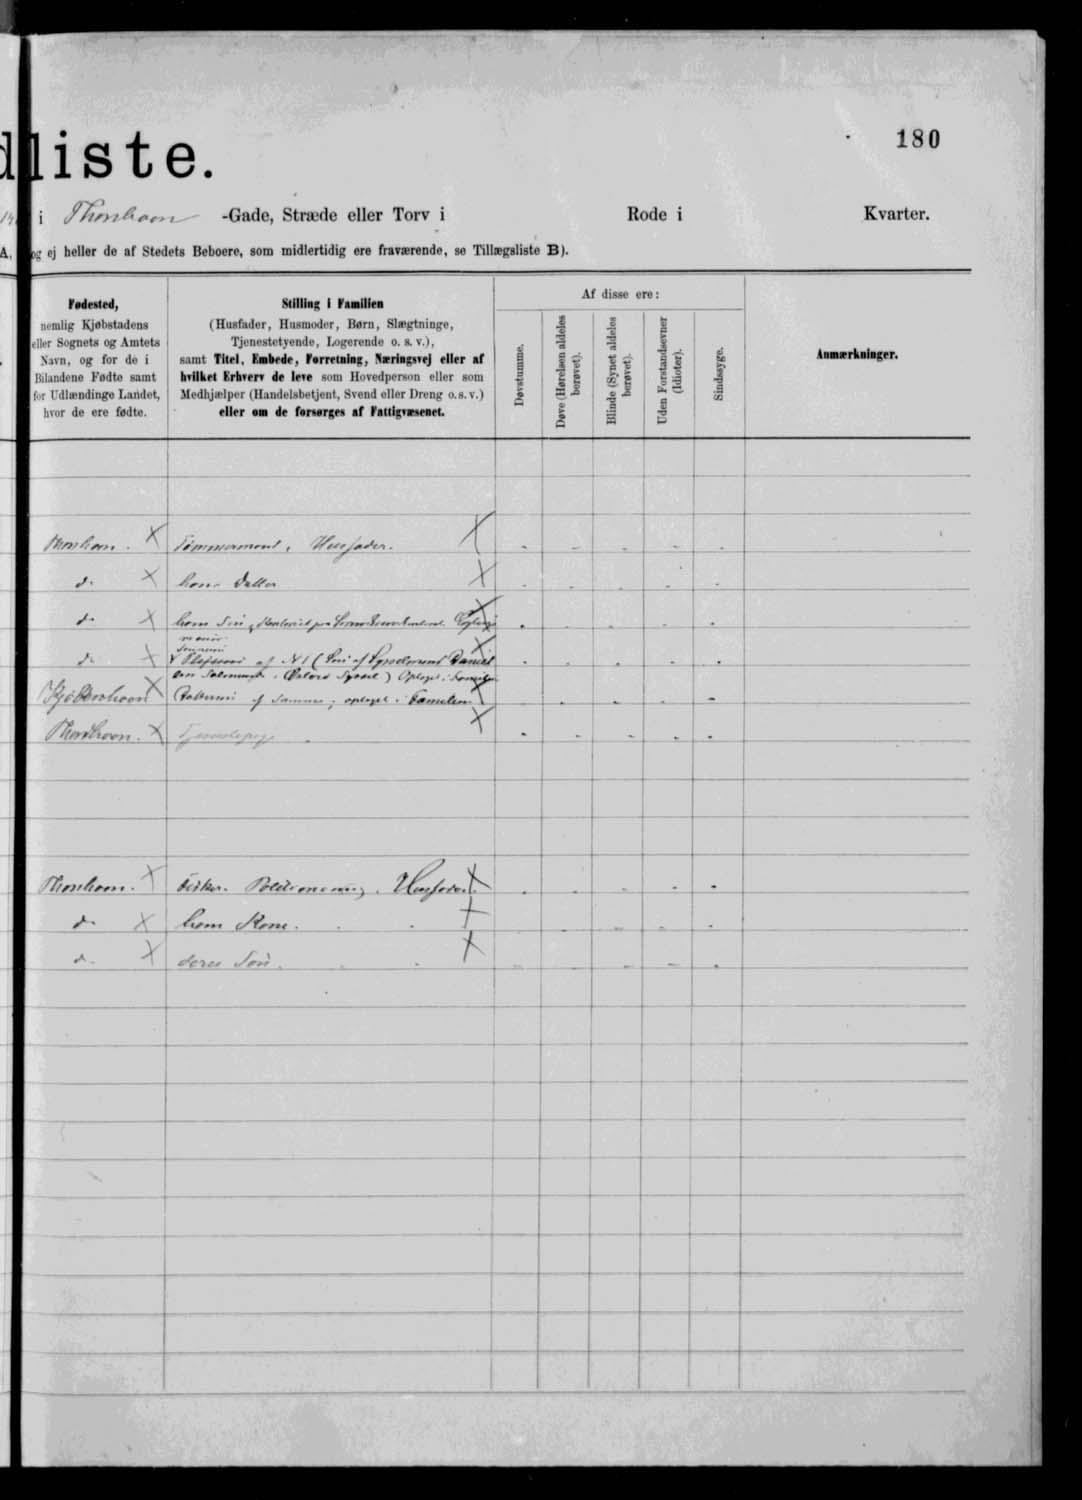 180
dliste.
i Thorshavn -Gade, Stræde eller Torv i Rode i Kvarter.
A, og ej heller de af Stedets Beboere, som midlertidig ere fraværende, se Tillægsliste B).
Fødested,
nemlig Kjøbstadens
eller Sognets og Amtets
Navn, og for de i
Bilandene Fødte samt
for Udlændinge Landet,
hvor de ere fødte.
Stilling i Familien
(Husfader, Husmoder, Børn, Slægtninge,
Tjenestetyende, Logerende o. s. v.),
samt Titel, Embede, Forretning, Næringsvej eller af
hvilket Erhverv de leve som Hovedperson eller som
Medhjælper (Handelsbetjent, Svend eller Dreng o.s.v.)
eller om de forsørges af Fattigvæsenet.
Af disse ere:
Døvstumme.
Døve (Hørelsen aldeles
berøvet).
Blinde (Synet aldeles
berøvet).
Uden Forstandsevner
(Idioter).
Sindssyge.
Anmærkninger.
Thorshavn. Tømmermand, Husfader.
do hans Datter
do hans Søn,
do af No 1 (Søn af Daniel
Optaget i Familien
Kjøbenhavn af Samme, optaget i Familien
Thorshavn. Tjenestepige
Thorshavn. Fisker. Husfader.
do hans Kone.
do deres Søn.